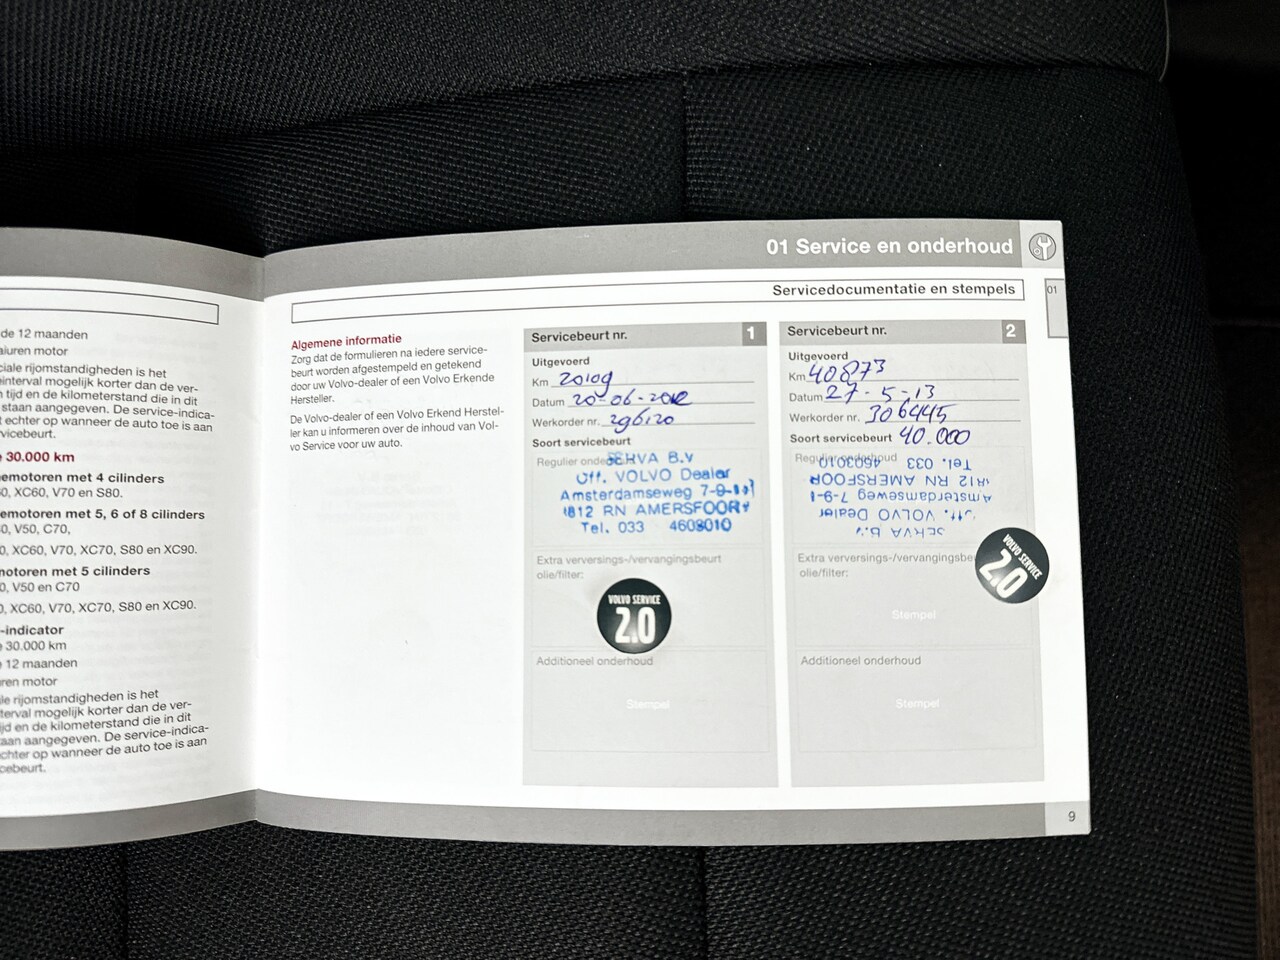 de 12 maanden
aiuren motor
ciale rijomstandigheden is het
einterval mogelijk korter dan de ver-
n tijd en de kilometerstand die in dit
staan aangegeven. De service-indica-
t echter op wanneer de auto toe is aan
vicebeurt.
e 30.000 km
emotoren met 4 cilinders
0, XC60, V70 en S80.
emotoren met 5, 6 of 8 cilinders
0, V50, C70,
0, XC60, V70, XC70, S80 en XC90.
motoren met 5 cilinders
0, V50 en C70
0, XC60, V70, XC70, S80 en XC90.
-indicator
e 30.000 km
e 12 maanden
uren motor
ale rijomstandigheden is het
terval mogelijk korter dan de ver-
ijd en de kilometerstand die in dit
aan aangegeven. De service-indica-
chter op wanneer de auto toe is aan
cebeurt.
01 Service en onderhoud
Servicedocumentatie en stempels
01
Algemene informatie
Zorg dat de formulieren na iedere service-
beurt worden afgestempeld en getekend
door uw Volvo-dealer of een Volvo Erkende
Hersteller.
De Volvo-dealer of een Volvo Erkend Herstel-
ler kan u informeren over de inhoud van Vol-
vo Service voor uw auto.
Servicebeurt nr. 1
Uitgevoerd
Km 20109
Datum 20-06-2012
Werkorder nr. 296120
Soort servicebeurt
Regulier onderhoud
SERVA B.V
Off. VOLVO Dealer
Amsterdamseweg 7-9-
3812 RN AMERSFOORT
Tel. 033 4603010
Extra verversings-/vervangingsbeurt
olie/filter:
VOLVO SERVICE
2.0
Additioneel onderhoud
Stempel
Servicebeurt nr. 2
Uitgevoerd
Km 40873
Datum 27-5-13
Werkorder nr. 306445
Soort servicebeurt 40.000
Regulier onderhoud
SERVA B.V.
Off. VOLVO Dealer
Amsterdamseweg 7-9-
3812 RN AMERSFOOR
Tel. 033 4603010
Extra verversings-/vervangingsbeu
olie/filter:
VOLVO SERVICE
2.0
Stempel
Additioneel onderhoud
Stempel
9